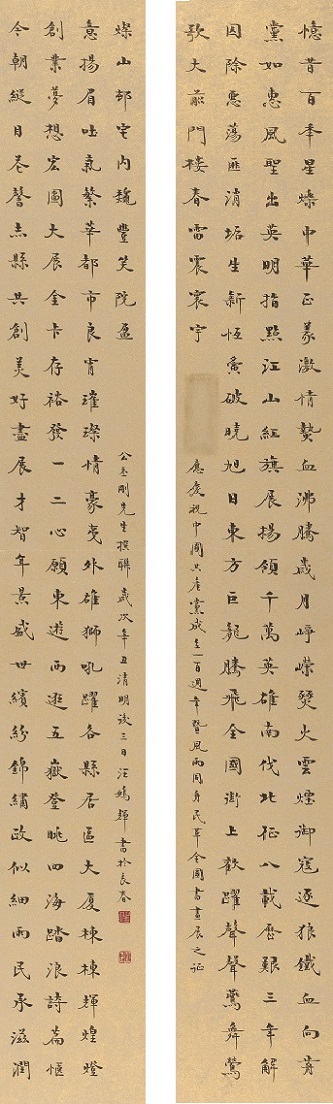 憶昔百年星燦中華正義激情贊血沸騰歲月崢嶸熒火雲煙御寇逐狼鐵血向前
黨如惠風聖出英明指點江山紅旗展揚領千萬英雄南伐北征八載歷艱三年解
囚除惡蕩匪消垢生新恆破曉旭日東方巨龍騰飛全國街上歡躍聲聲鶯舞鶯
歌大前門樓春雷震寰宇
應慶祝中國共產黨成立一百週年暨風雨同舟民革全國書畫展之征
今朝縱目縣共創美好盡展才智年景盛世繽紛錦繡政似細雨民承滋潤
創業夢想宏圖大展全卡存裕發一二心願東遊西逛五嶽登眺四海踏浪詩篇愜
意揚眉吐氣繁華都市良宵璀璨情豪外雄獅吼躍各縣居區大厦棟棟輝煌燈
燦山邨宅內豐笑院盈
公丕剛先生撰聯歲次辛丑清明後三日汪輝書於長春